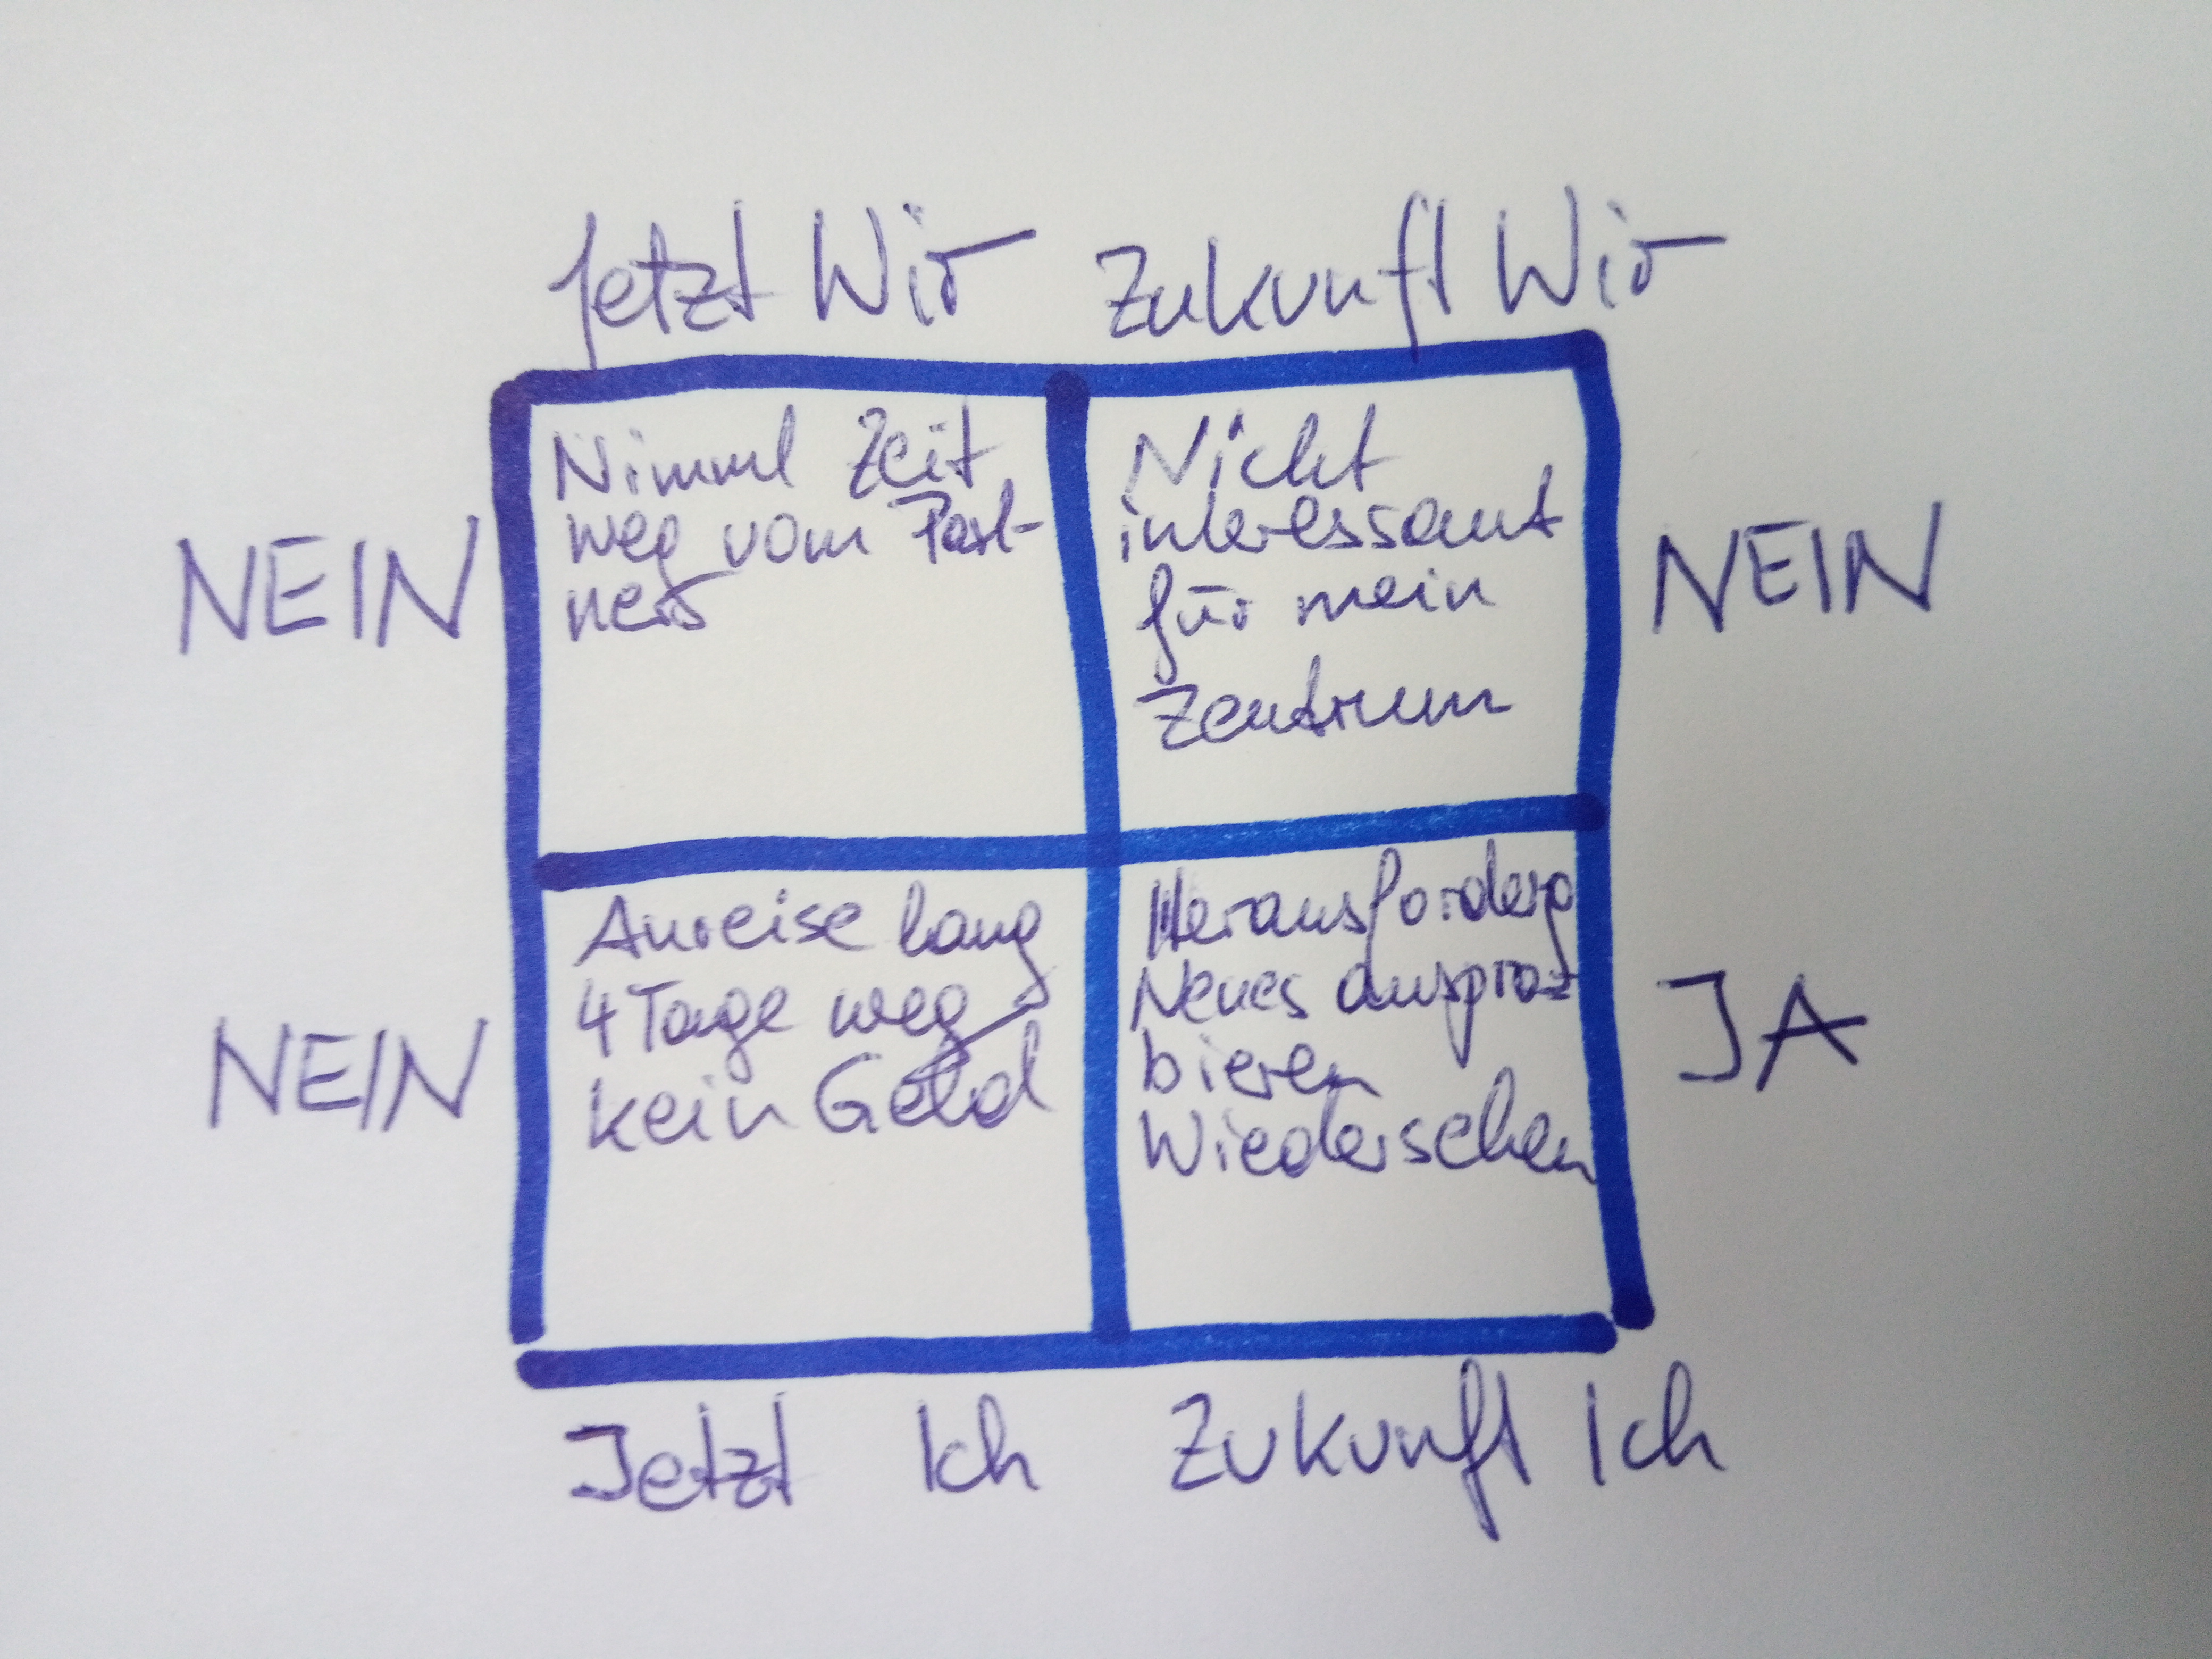 Jetzt Wir Zukunft Wir
Nimmt Zeit
weg vom Part-
ner
NEIN
Nicht
interessant
für mein
Zentrum
NEIN
Anreise lang
4 Tage weg
kein Geld
NEIN
Herausforderg
Neues auspro-
bieren
Wiedersehen
JA
Jetzt Ich Zukunft Ich